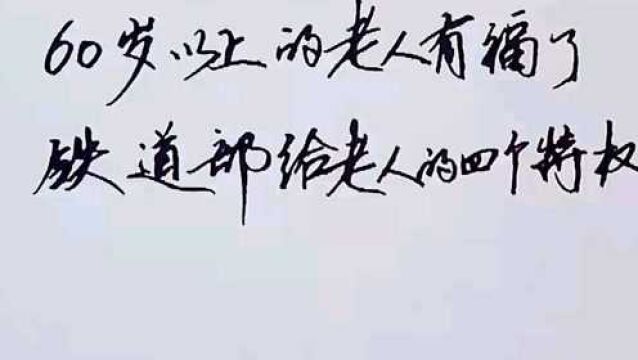 60岁以上的老人有福了
铁道部给老人的四个特权